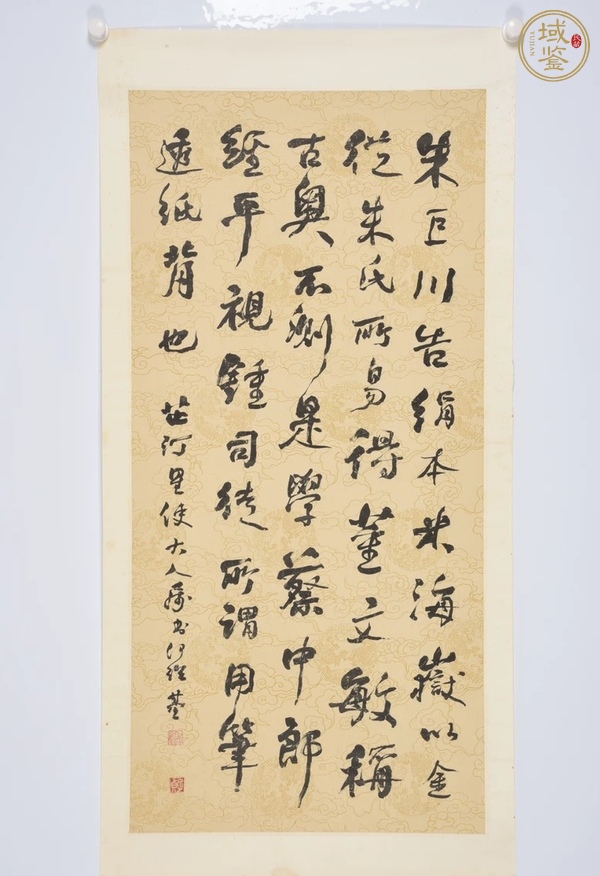 朱巨川告絹本米海嶽以金
從朱氏所易得董文敏稱
古奧不是學蔡中郎
經平視鍾司徒所謂用筆
透紙背也
芷汀星使大人屬書何紹基
域鉴
YUJIAN